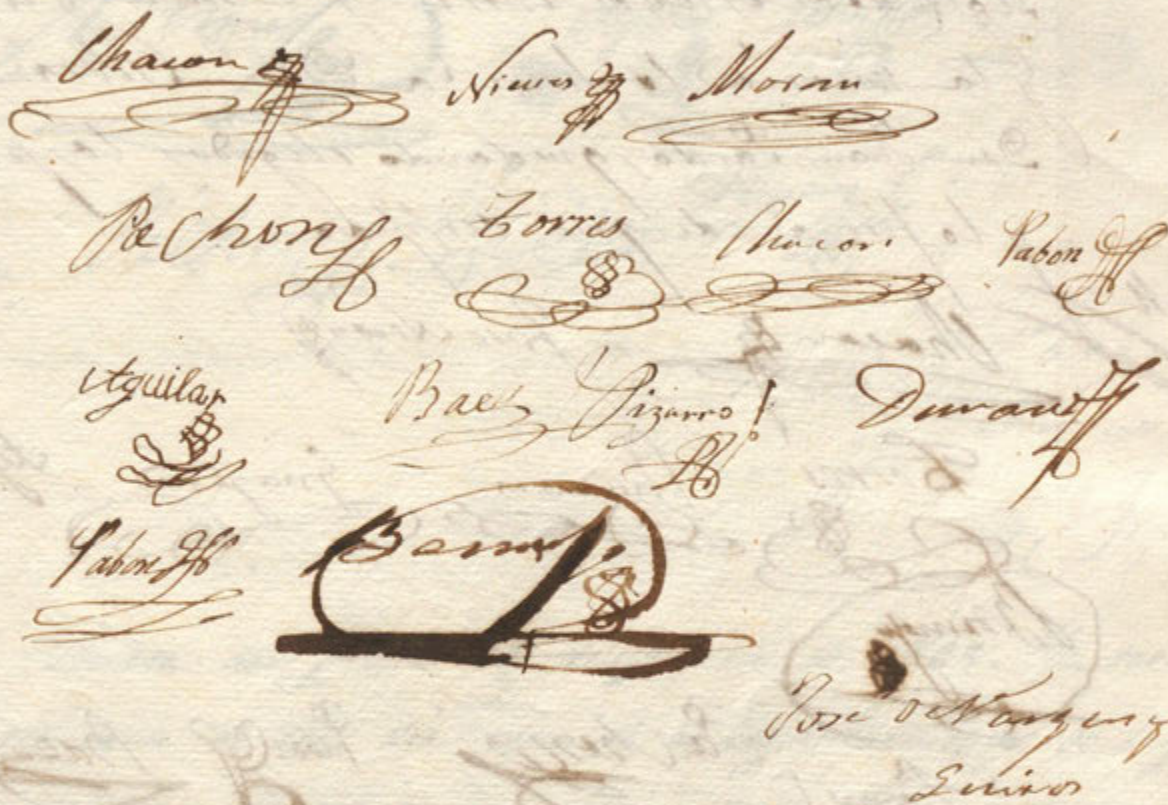 Chacon Nieves Moran
Pe Chon Torres Chacon Pabon
Aguilar Baez Pizarro Duran
Pabon
Jose de Vargas y
Quiros